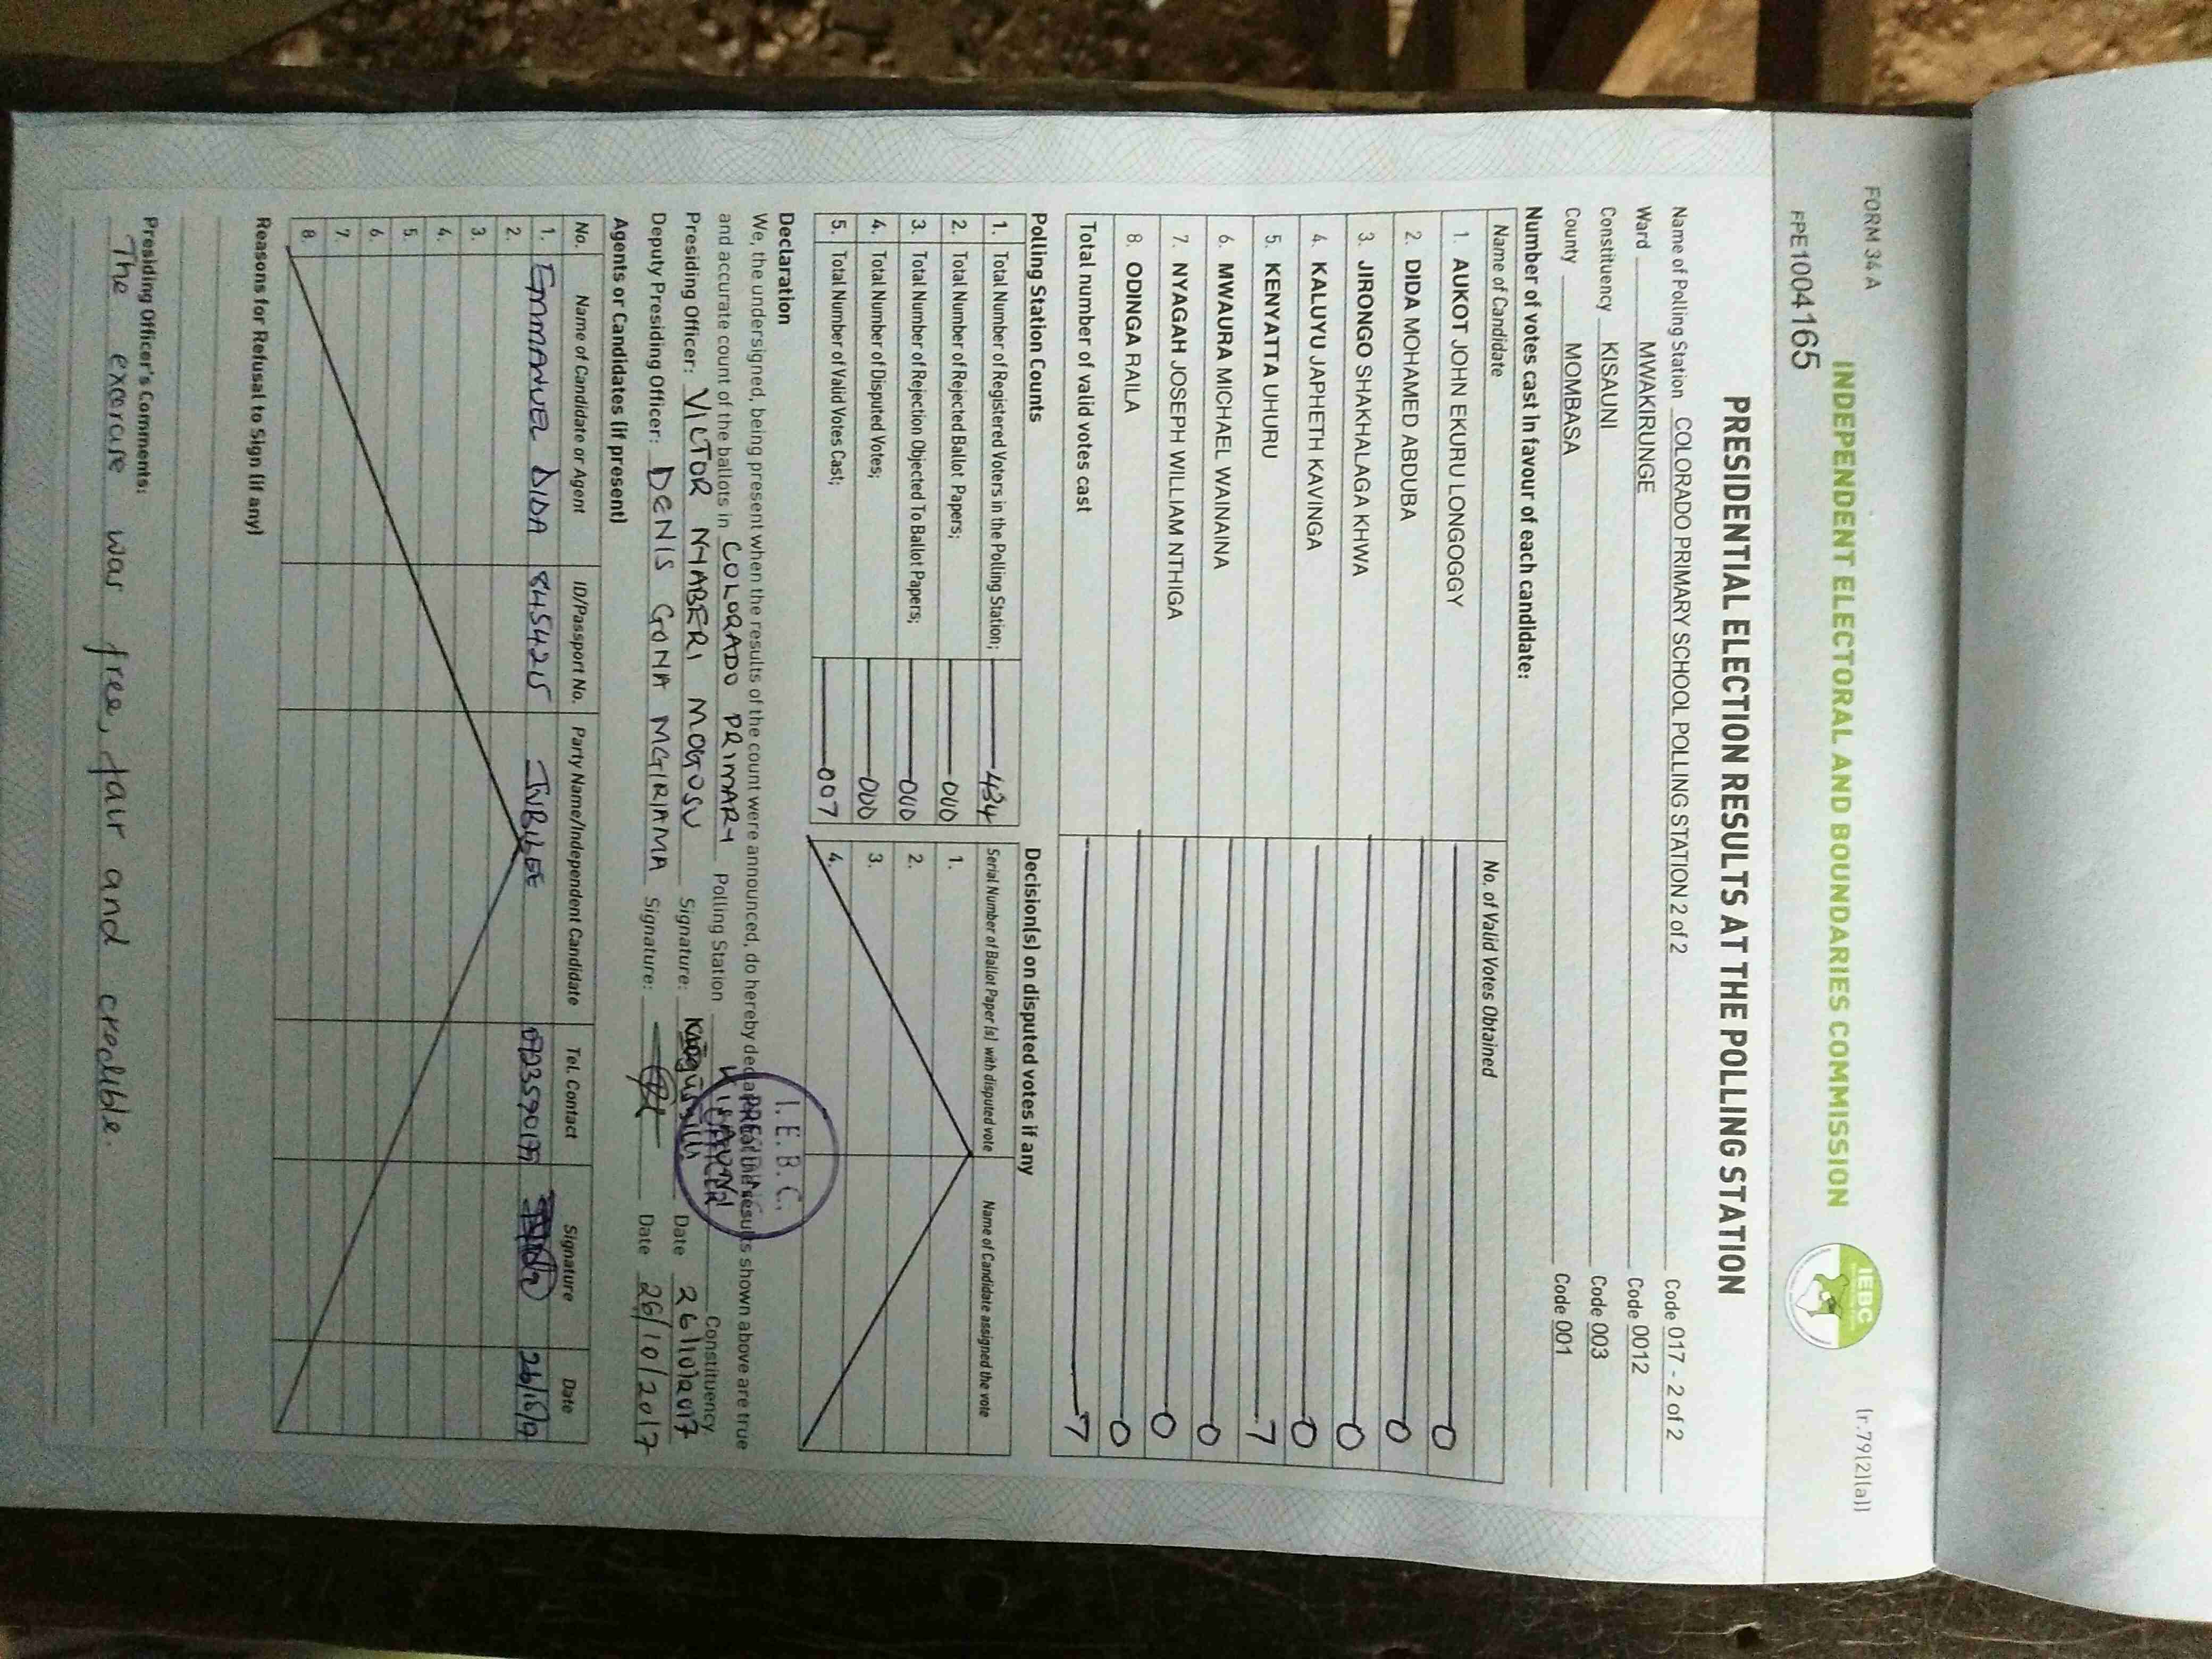 FORM 34 A
(r.79(2)(a))
INDEPENDENT ELECTORAL AND BOUNDARIES COMMISSION
IEBC
FPE1004165
PRESIDENTIAL ELECTION RESULTS AT THE POLLING STATION
Name of Polling Station COLORADO PRIMARY SCHOOL POLLING STATION 2 of 2 Code 017 - 2 of 2
Ward MWAKIRUNGE Code 0012
Constituency KISAUNI Code 003
County MOMBASA Code 001
Number of votes cast in favour of each candidate:
Name of Candidate No. of Valid Votes Obtained
1. AUKOT JOHN EKURU LONGOGGY 0
2. DIDA MOHAMED ABDUBA 0
3. JIRONGO SHAKHALAGA KHWA 0
4. KALUYU JAPHETH KAVINGA 0
5. KENYATTA UHURU 7
6. MWAURA MICHAEL WAINAINA 0
7. NYAGAH JOSEPH WILLIAM NTHIGA 0
8. ODINGA RAILA 0
Total number of valid votes cast 7
Polling Station Counts
1. Total Number of Registered Voters in the Polling Station; 434
2. Total Number of Rejected Ballot Papers; 000
3. Total Number of Rejection Objected To Ballot Papers; 000
4. Total Number of Disputed Votes; 000
5. Total Number of Valid Votes Cast; 007
Decision(s) on disputed votes if any
Serial Number of Ballot Paper (s) with disputed vote Name of Candidate assigned the vote
1.
2.
3.
4.
Declaration
We, the undersigned, being present when the results of the count were announced, do hereby declare that the results shown above are true
and accurate count of the ballots in COLORADO PRIMARY Polling Station KISAUNI Constituency
Presiding Officer: VICTOR NYABERI MOGUSU Signature: Date 26/10/2017
Deputy Presiding Officer: DENIS GONA MGIRIAMA Signature: Date 26/10/2017
I.E.B.C.
PRESIDING
OFFICER
Agents or Candidates (if present)
No. Name of Candidate or Agent ID/Passport No. Party Name/Independent Candidate Tel. Contact Signature Date
1. EMMANUEL DIDA 8454215 JUBILEE
2.
3.
4.
5.
6.
7.
8.
Reasons for Refusal to Sign (if any)
Presiding Officer's Comments:
The exercise was free, fair and credible.